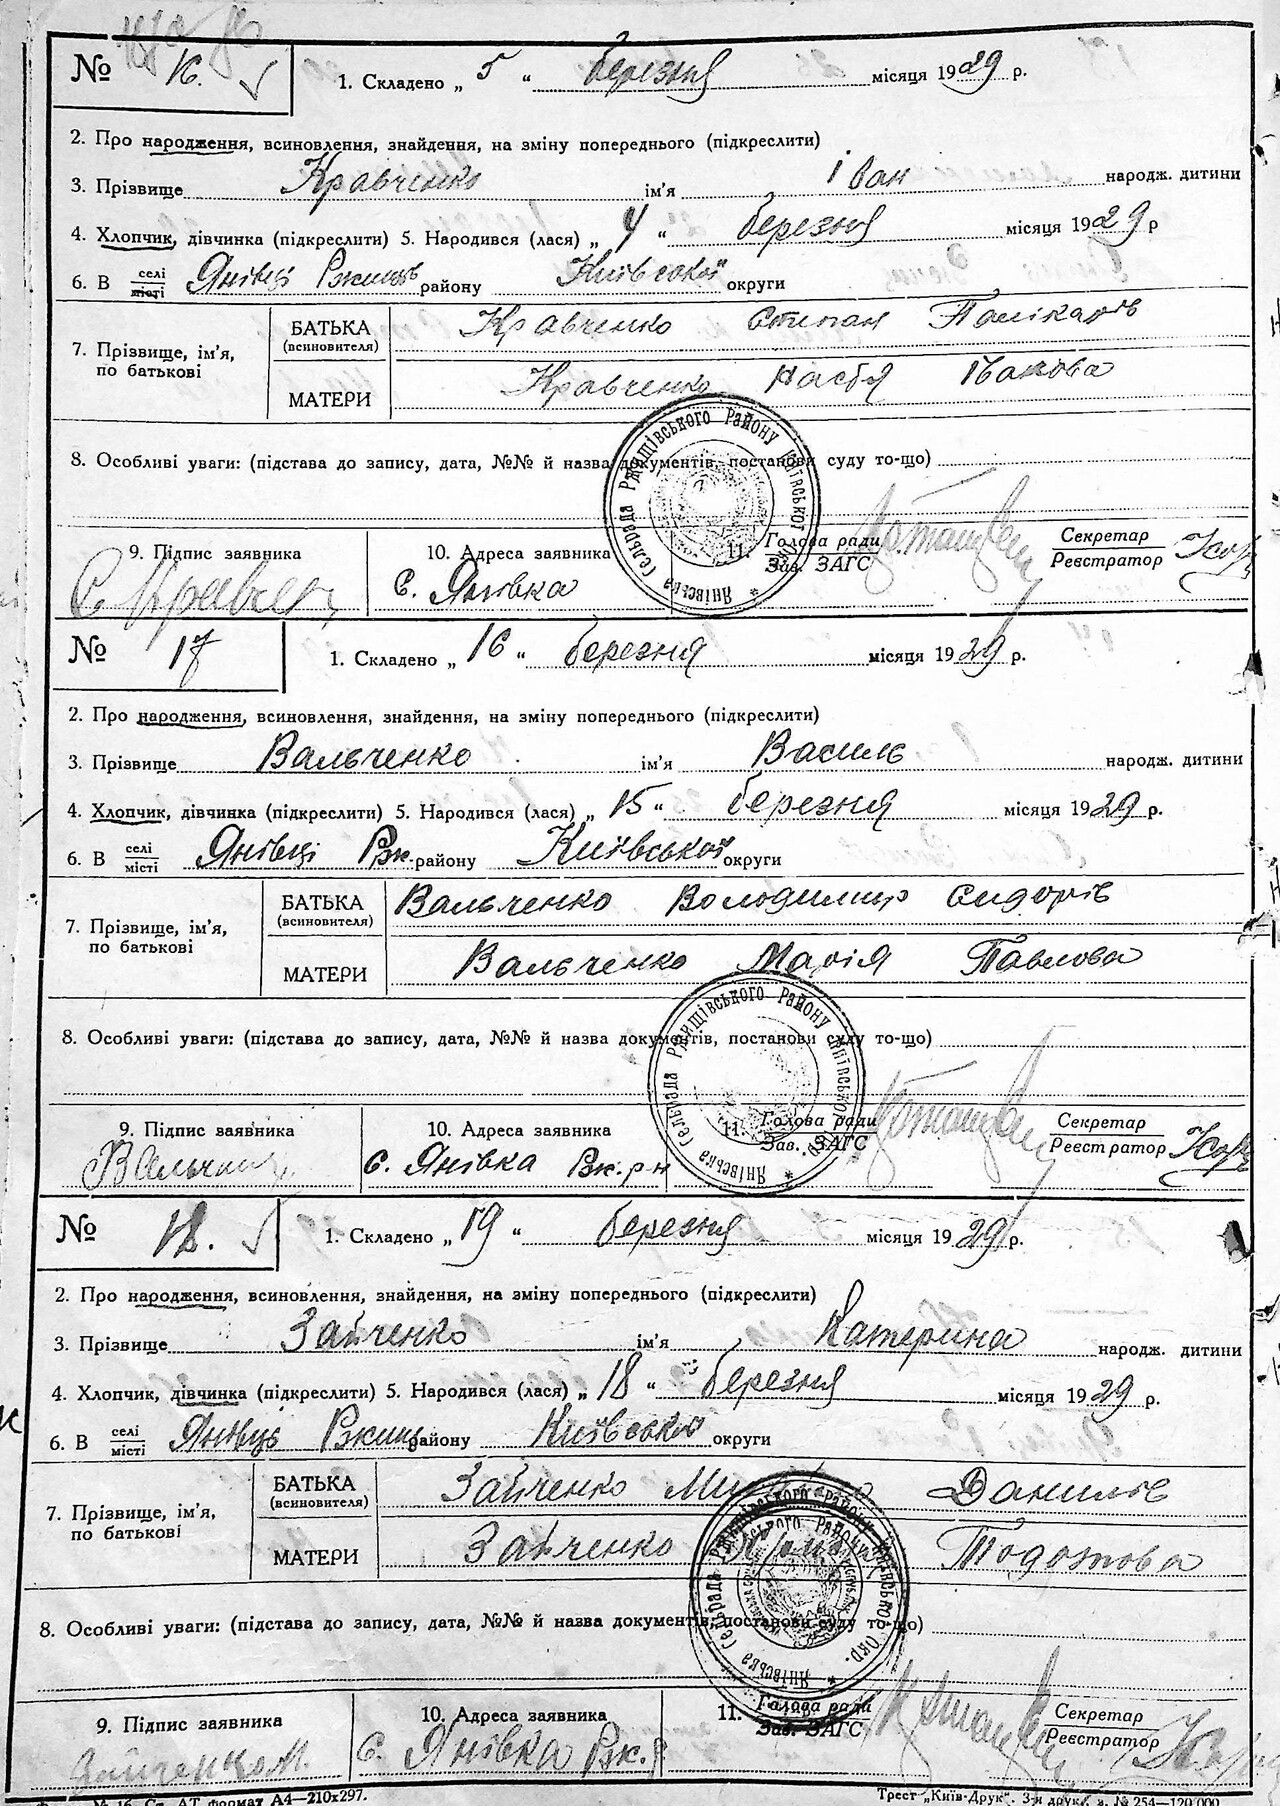 № 16. 1. Складено „ 5 “ березня місяця 1929 р.
2. Про народження, всиновлення, знайдення, на зміну попереднього (підкреслити)
3. Прізвище Кравченко ім'я Іван народж. дитини
4. Хлопчик, дівчинка (підкреслити) 5. Народився (лася) „ 4 “ березня місяця 1929 р
6. В селі місті Янівці Ржищів району Київської округи
7. Прізвище, ім'я, по батькові БАТЬКА (всиновителя) Кравченко Степан Полікарів
МАТЕРИ Кравченко Настя Іванова
8. Особливі уваги: (підстава до запису, дата, №№ й назва документів, постанови суду то-що)
Янівська Сельрада Ржищівського Району Київської Окр.
9. Підпис заявника 10. Адреса заявника 11. Голова ради Зав. ЗАГС Секретар Реєстратор
с. Янівка
№ 17 1. Складено „ 16 “ березня місяця 1929 р.
2. Про народження, всиновлення, знайдення, на зміну попереднього (підкреслити)
3. Прізвище Вальченко ім'я Василь народж. дитини
4. Хлопчик, дівчинка (підкреслити) 5. Народився (лася) „ 15 “ березня місяця 1929 р.
6. В селі місті Янівці Рж. району Київської округи
7. Прізвище, ім'я, по батькові БАТЬКА (всиновителя) Вальченко Володимир Сидорів
МАТЕРИ Вальченко Марія Павлова
8. Особливі уваги: (підстава до запису, дата, №№ й назва документів, постанови суду то-що)
Янівська Сельрада Ржищівського Району Київської Окр.
9. Підпис заявника 10. Адреса заявника 11. Голова ради Зав. ЗАГС Секретар Реєстратор
с. Янівка Рж. р-н
№ 18. 1. Складено „ 19 “ березня місяця 1929 р.
2. Про народження, всиновлення, знайдення, на зміну попереднього (підкреслити)
3. Прізвище Зайченко ім'я Катерина народж. дитини
4. Хлопчик, дівчинка (підкреслити) 5. Народився (лася) „ 18 “ березня місяця 1929 р.
6. В селі місті Янівць Ржищ району Київської округи
7. Прізвище, ім'я, по батькові БАТЬКА (всиновителя) Зайченко Данилів
МАТЕРИ Зайченко Тодотова
8. Особливі уваги: (підстава до запису, дата, №№ й назва документів, постанови суду то-що)
Янівська Сельрада Ржищівського Району Київської Окр.
9. Підпис заявника 10. Адреса заявника 11. Голова ради Зав. ЗАГС Секретар Реєстратор
Зайченко М. с. Янівка Рж. р
№ 16. Ст. АТ. формат А4—210х297. Трест „Київ-Друк“. 3-я друк. з. № 254—120.000